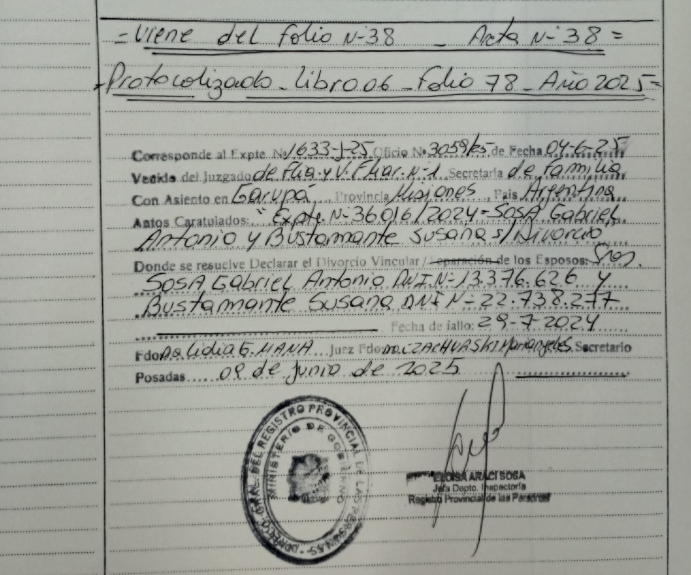 = Viene del folio N-38 - Acta N-38 =
= Protocolizado - Libro 06 - Folio 78 - Año 2025 =
Corresponde al Expte Nº 1633-J-25 Oficio Nº 3059/25 de Fecha 04-6-25
Venida del Juzgado de Flia. y V. Fliar. N-1 Secretaria de Familia
Con Asiento en Garupá Provincia Misiones País Argentina
Autos Caratulados: "Expte. N-36016/2024 - Sosa Gabriel
Antonio y Bustamante Susana s/ Divorcio
Donde se resuelve Declarar el Divorcio Vincular / Separación de los Esposos: Sres.
Sosa Gabriel Antonio DNI N-13.376.626 y
Bustamante Susana DNI N-22.738.277
Fecha de fallo: 29-7-2024
Fdo: Lidia E. MANA Juez Fdo: Secretario
Posadas 09 de Junio de 2025
DIRECC. GRAL. DEL REGISTRO PROVINCIAL DE LAS PERSONAS
MINISTERIO DE GOBIERNO
ELOISA ARACI SOSA
Jefa Depto. Inspectoría
Registro Provincial de las Personas